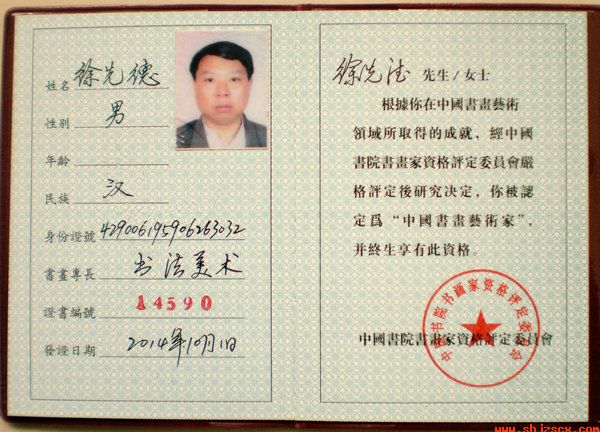 姓名 徐先德
性别 男
年齡
民族 汉
身份證號 429006195906263032
書畫專長 书法美术
證書編號 14590
發證日期 2014年10月1日
徐先德 先生/女士
根據你在中國書畫藝術
領域所取得的成就，經中國
書院書畫家資格評定委員會嚴
格評定後研究决定，你被認
定爲“中國書畫藝術家”，
并終生享有此資格。
中国书院书画家资格评定委员会
中國書院書畫家資格評定委員會
www.shjzscx.com